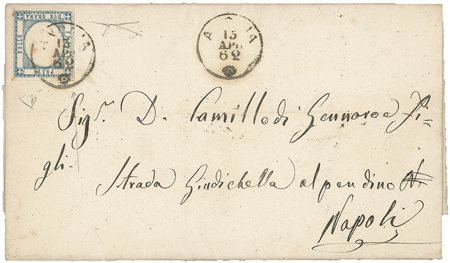 15
APR
62
15
APR
62
Sigr. D. Camillo di Gennaro e Fi=
gli.
Strada Giudichella al pendino
Napoli